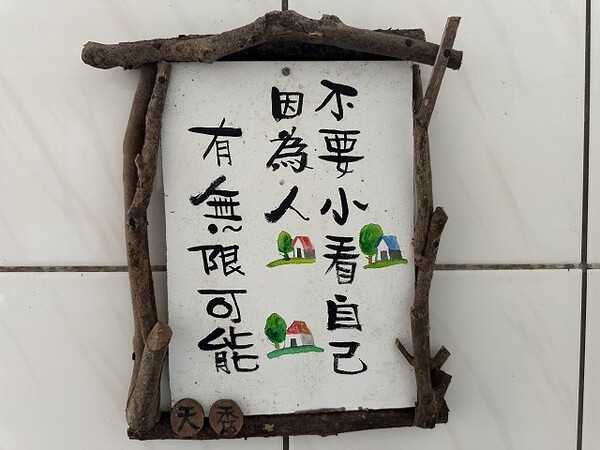 不要小看自己
因為人
有無限可能
天秀